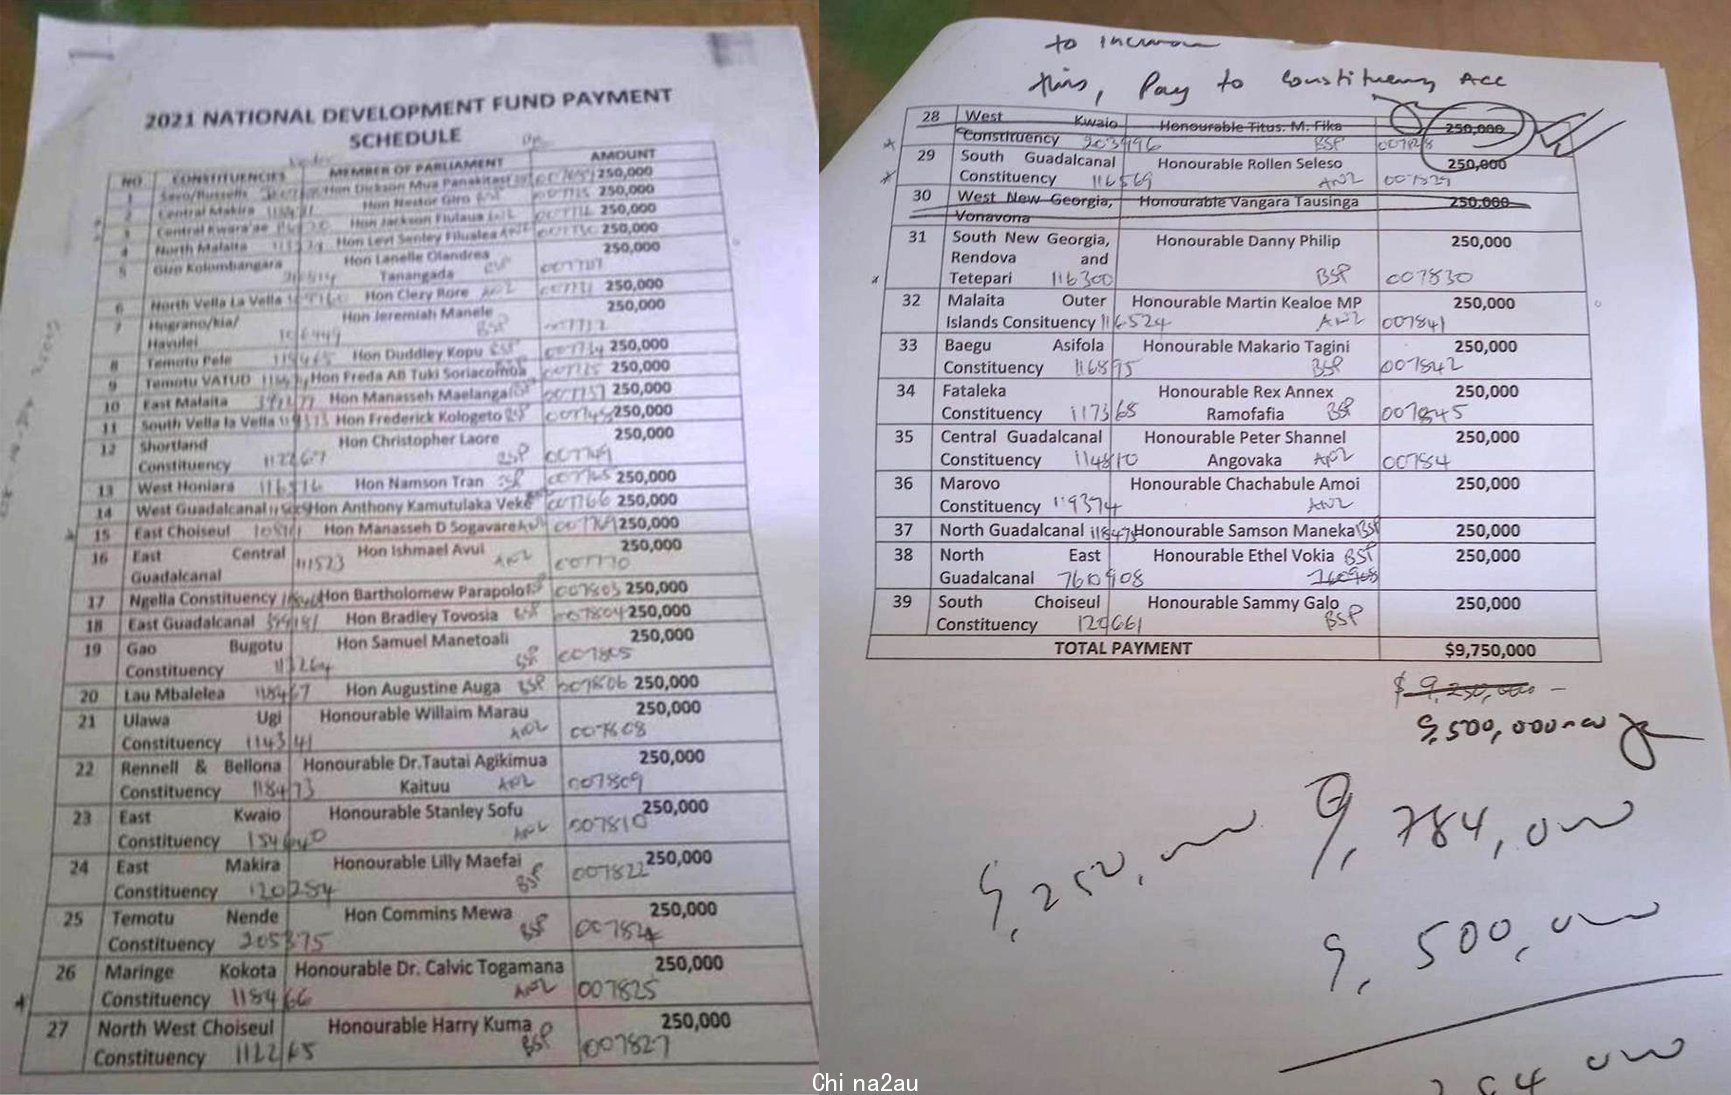 2021 NATIONAL DEVELOPMENT FUND PAYMENT
SCHEDULE
NO CONSTITUENCIES MEMBER OF PARLIAMENT AMOUNT
1 Savo/Russells Hon Dickson Mua Panakitasi 250,000
2 Central Makira Hon Nestor Giro 250,000
3 Central Kwara'ae Hon Jackson Fiulaua 250,000
4 North Malaita Hon Levi Senley Filualea ANZ 250,000
5 Gizo Kolombangara Hon Lanelle Olandrea 250,000
Tanangada BSP 007727
6 North Vella La Vella Hon Clezy Rore ANZ 007731 250,000
7 Hograno/kia/ Hon Jeremiah Manele 250,000
Havulei BSP
8 Temotu Pele Hon Duddley Kopu BSP 250,000
9 Temotu VATUD Hon Freda AB Tuki Soriacomua 250,000
10 East Malaita Hon Manasseh Maelanga 250,000
11 South Vella la Vella Hon Frederick Kologeto BSP 250,000
12 Shortland Hon Christopher Laore 250,000
Constituency 112267 BSP 007749
13 West Honiara 116516 Hon Namson Tran BSP 007765 250,000
14 West Guadalcanal Hon Anthony Kamutulaka Veke 007766 250,000
15 East Choiseul Hon Manasseh D Sogavare 007769 250,000
16 East Central Hon Ishmael Avui 250,000
Guadalcanal 111523 ANZ 007770
17 Ngella Constituency Hon Bartholomew Parapolo 007803 250,000
18 East Guadalcanal Hon Bradley Tovosia BSP 007804 250,000
19 Gao Bugotu Hon Samuel Manetoali 250,000
Constituency 113264 BSP 007805
20 Lau Mbalelea 118467 Hon Augustine Auga BSP 007806 250,000
21 Ulawa Ugi Honourable Willaim Marau 250,000
Constituency 114341 ANZ 007808
22 Rennell & Bellona Honourable Dr.Tautai Agikimua 250,000
Constituency 118473 Kaituu ANZ 007809
23 East Kwaio Honourable Stanley Sofu 250,000
Constituency 154640 ANZ 007810
24 East Makira Honourable Lilly Maefai 250,000
Constituency 120284 BSP 007822
25 Temotu Nende Hon Commins Mewa 250,000
Constituency 205375 BSP 007824
26 Maringe Kokota Honourable Dr. Calvic Togamana 250,000
Constituency 118466 ANZ 007825
27 North West Choiseul Honourable Harry Kuma 250,000
Constituency 112265 BSP 007827
to increase
this, Pay to Constituency Acc
28 West Kwaio Honourable Titus. M. Fika 250,000
Constituency 203996 BSP 007828
29 South Guadalcanal Honourable Rollen Seleso 250,000
Constituency 116569 ANZ 007829
30 West New Georgia, Honourable Vangara Tausinga 250,000
Vonavona
31 South New Georgia, Honourable Danny Philip 250,000
Rendova and
Tetepari 116300 BSP 007830
32 Malaita Outer Honourable Martin Kealoe MP 250,000
Islands Consituency 116524 ANZ 007841
33 Baegu Asifola Honourable Makario Tagini 250,000
Constituency 116895 BSP 007842
34 Fataleka Honourable Rex Annex 250,000
Constituency 117368 Ramofafia BSP 007845
35 Central Guadalcanal Honourable Peter Shannel 250,000
Constituency 114810 Angovaka ANZ 00784
36 Marovo Honourable Chachabule Amoi 250,000
Constituency 119374 ANZ
37 North Guadalcanal 118478 Honourable Samson Maneka BSP 250,000
38 North East Honourable Ethel Vokia BSP 250,000
Guadalcanal 7610908 260908
39 South Choiseul Honourable Sammy Galo 250,000
Constituency 120661 BSP
TOTAL PAYMENT $9,750,000
$ 9,250,000 -
9,500,000-00
9,784,000
9,250,000
9,500,000
284 000
Chi na2au